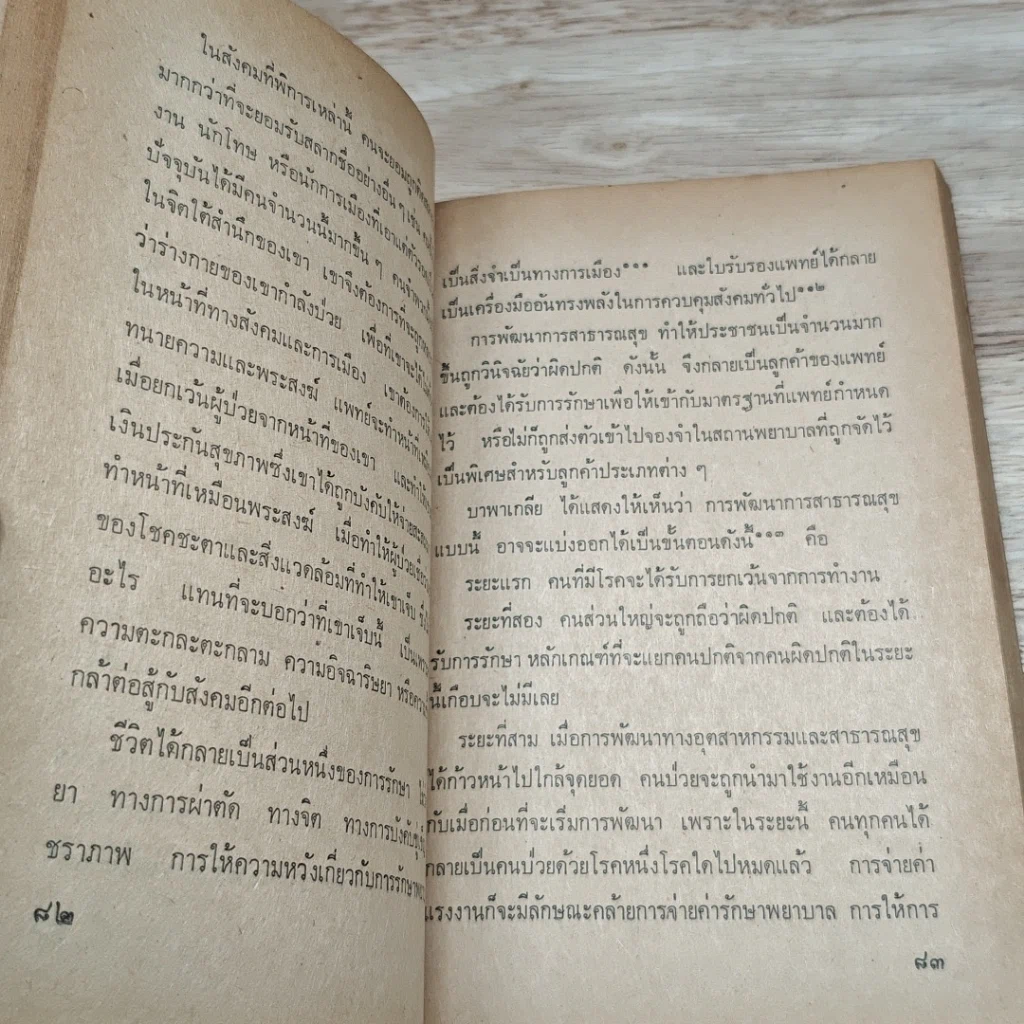 ในสังคมที่พิการเหล่านี้ คนจะยอม
มากกว่าที่จะยอมรับสลากชื่ออย่างอื่น ๆ เช่น
งาน นักโทษ หรือนักการเมืองที่เอาแต่
ปัจจุบันได้มีคนจำนวนนี้มากขึ้น ๆ
ในจิตใต้สำนึกของเขา เขาจึงต้องการที่จะ
ว่าร่างกายของเขากำลังป่วย เพื่อที่เขาจะได้
ในหน้าที่ทางสังคมและการเมือง เขาต้องการ
ทนายความและพระสงฆ์ แพทย์จะทำหน้าที่
เมื่อยกเว้นผู้ป่วยจากหน้าที่ของเขา และทำ
เงินประกันสุขภาพซึ่งเขาได้ถูกบังคับให้จ่าย
ทำหน้าที่เหมือนพระสงฆ์ เมื่อทำให้ผู้ป่วย
ของโชคชะตาและสิ่งแวดล้อมที่ทำให้เขาเจ็บ
อะไร แทนที่จะบอกว่าที่เขาเจ็บนี้ เป็นเพราะ
ความตะกละตะกลาม ความอิจฉาริษยา หรือ
กล้าต่อสู้กับสังคมอีกต่อไป
ชีวิตได้กลายเป็นส่วนหนึ่งของการรักษา
ยา ทางการผ่าตัด ทางจิต ทางการบังคับ
ชราภาพ การให้ความหวังเกี่ยวกับการรักษา
๘๒
เป็นสิ่งจำเป็นทางการเมือง๑๑๑ และใบรับรองแพทย์ได้กลาย
เป็นเครื่องมืออันทรงพลังในการควบคุมสังคมทั่วไป๑๑๒
การพัฒนาการสาธารณสุข ทำให้ประชาชนเป็นจำนวนมาก
ขึ้นถูกวินิจฉัยว่าผิดปกติ ดังนั้น จึงกลายเป็นลูกค้าของแพทย์
และต้องได้รับการรักษาเพื่อให้เข้ากับมาตรฐานที่แพทย์กำหนด
ไว้ หรือไม่ก็ถูกส่งตัวเข้าไปจองจำในสถานพยาบาลที่ถูกจัดไว้
เป็นพิเศษสำหรับลูกค้าประเภทต่าง ๆ
บาพาเกลีย ได้แสดงให้เห็นว่า การพัฒนาการสาธารณสุข
แบบนี้ อาจจะแบ่งออกได้เป็นขั้นตอนดังนี้๑๑๓ คือ
ระยะแรก คนที่มีโรคจะได้รับการยกเว้นจากการทำงาน
ระยะที่สอง คนส่วนใหญ่จะถูกถือว่าผิดปกติ และต้องได้
รับการรักษา หลักเกณฑ์ที่จะแยกคนปกติจากคนผิดปกติในระยะ
นี้เกือบจะไม่มีเลย
ระยะที่สาม เมื่อการพัฒนาทางอุตสาหกรรมและสาธารณสุข
ได้ก้าวหน้าไปใกล้จุดยอด คนป่วยจะถูกนำมาใช้งานอีกเหมือน
กับเมื่อก่อนที่จะเริ่มการพัฒนา เพราะในระยะนี้ คนทุกคนได้
กลายเป็นคนป่วยด้วยโรคหนึ่งโรคใดไปหมดแล้ว การจ่ายค่า
แรงงานก็จะมีลักษณะคล้ายการจ่ายค่ารักษาพยาบาล การให้การ
๘๓